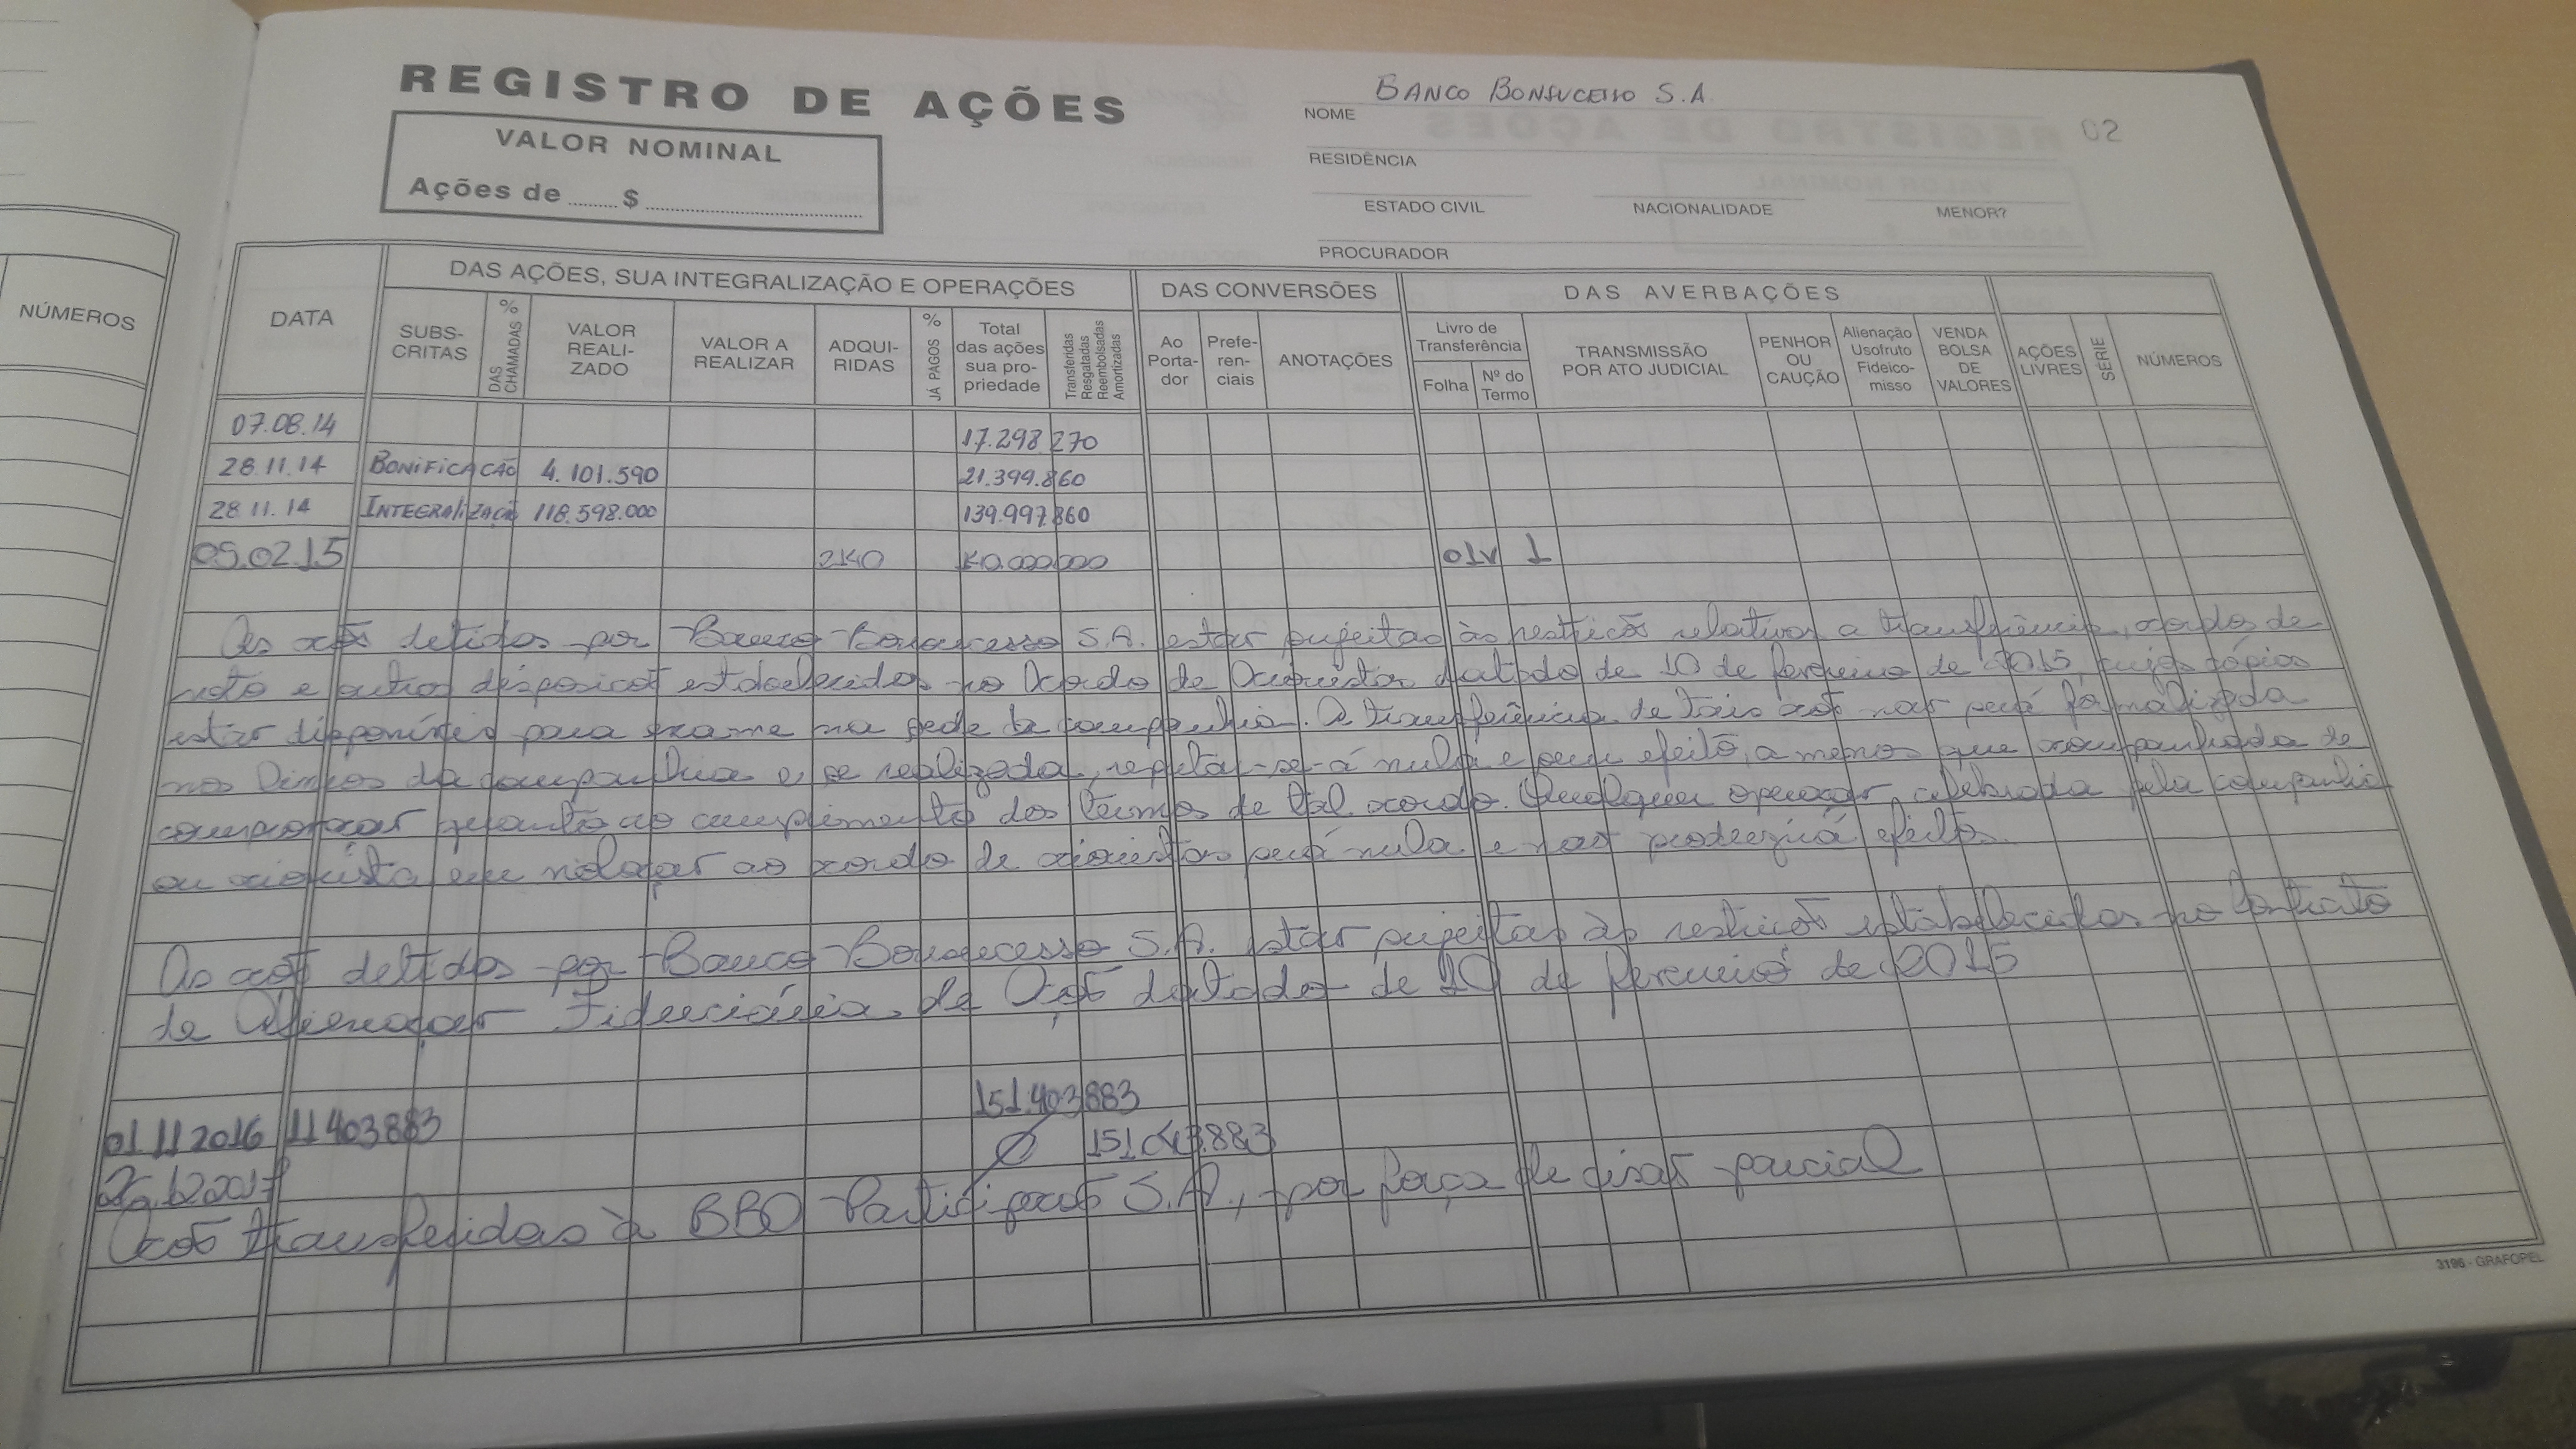 REGISTRO DE AÇÕES
VALOR NOMINAL
Ações de ........ $ ........
BANCO BONSUCESSO S.A
NOME
02
RESIDÊNCIA
ESTADO CIVIL NACIONALIDADE MENOR?
PROCURADOR
NÚMEROS
DATA
DAS AÇÕES, SUA INTEGRALIZAÇÃO E OPERAÇÕES
DAS CONVERSÕES
DAS AVERBAÇÕES
SUBS-
CRITAS
DAS CHAMADAS %
VALOR
REALI-
ZADO
VALOR A
REALIZAR
ADQUI-
RIDAS
JÁ PAGOS %
Total
das ações
sua pro-
priedade
Transferidas
Resgatadas
Reembolsadas
Amortizadas
Ao
Porta-
dor
Prefe-
ren-
ciais
ANOTAÇÕES
Livro de
Transferência
Folha
Nº do
Termo
TRANSMISSÃO
POR ATO JUDICIAL
PENHOR
OU
CAUÇÃO
Alienação
Usofruto
Fideico-
misso
VENDA
BOLSA
DE
VALORES
AÇÕES
LIVRES
SÉRIE
NÚMEROS
07.08.14 17.298.270
28.11.14 BONIFICAÇÃO 4.101.590 21.399.860
28.11.14 INTEGRALIZAÇÃO 118.598.000 139.997.860
09.02.15 2140 140.000.000 01v 1
As ações detidas por Banco Bonsucesso S.A. estão sujeitas às restrições relativas a transferência, acordos de
voto e outras disposições estabelecidas no Acordo de Acionistas datado de 10 de fevereiro de 2015, cujas cópias
estão disponíveis para exame na sede da companhia. A transferência de tais ações não será formalizada
nos Livros da companhia e, se realizada, reputar-se-á nula e sem efeito, a menos que acompanhada de
comprovação quanto ao cumprimento dos termos de tal acordo. Qualquer operação celebrada pela companhia
ou acionista em violação ao acordo de acionistas será nula e não produzirá efeitos.
As ações detidas por Banco Bonsucesso S.A. estão sujeitas às restrições estabelecidas no Contrato
de Alienação Fiduciária de Ações datado de 10 de fevereiro de 2015
01 11 2016 11403883 151.403883
Ø
Ações transferidas à BBO Participações S.A., por força de cisão parcial
3196 - GRAFOPEL